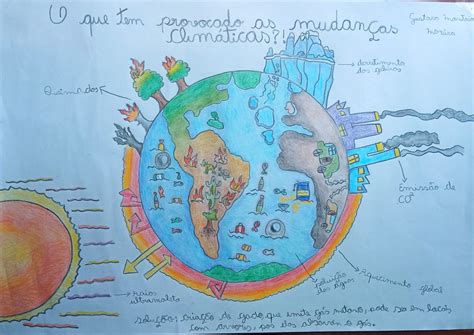 O que tem provocado as mudanças
climáticas?!
Gustavo
Moreira
derretimento
das geleiras
Queimadas
Emissão de
CO²
Aquecimento global
poluição
das águas
raios
ultravioleta
solução: criação de gado que emite gás metano, pode ser em locais
com árvores, pois elas absorvem o gás.